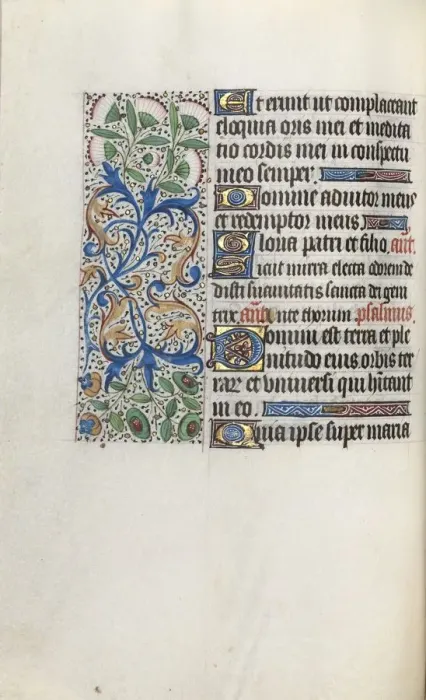 Et erunt ut complaceant
eloquia oris mei et medita
tio cordis mei in conspectu
meo semper.
Domine adiutor meus
et redemptor meus
Gloria patri et filio. ant.
Sicut mirra electa odorem de
disti suauitatis sancta dei geni
trix ant. Ante thorum psalmus.
Domini est terra et ple
nitudo eius orbis ter
rarum et uniuersi qui habitant
in eo.
Quia ipse super maria